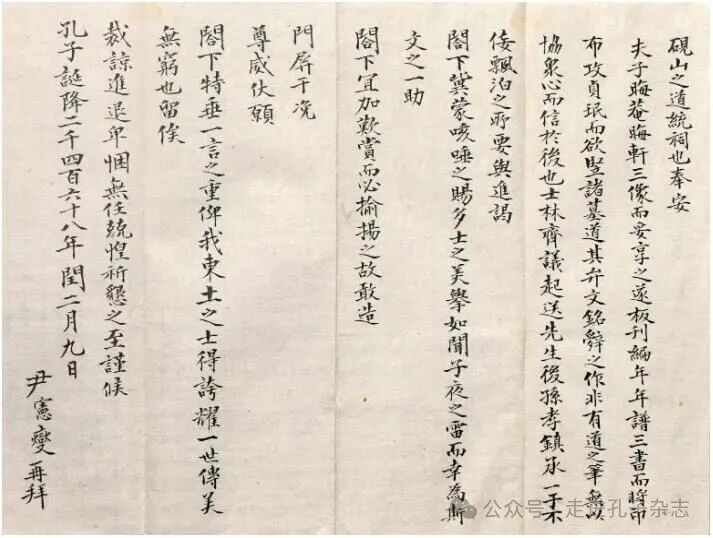 硯山之道統祠也奉安
夫子晦菴晦軒三像而妥享之遂板刊編年年譜三書而將印
布攻貞珉而欲竪諸墓道其弁文銘辭之作非有道之筆無以
協衆心而信於後也士林齊議起送先生後孫孝鎮承一于不
倭飄泊之所要與進謁
閤下冀蒙咳唾之賜多士之美舉如聞子夜之雷而幸為斯
文之一助
閤下宜加歎賞而必揄揚之故敢造
門屏干冼
尊威伏願
閤下特垂一言之重俾我東土之士得誇耀一世傳美
無窮也留俟
裁諒進退卑悃無任兢惶祈懇之至謹候
孔子誕降二千四百六十八年閏二月九日
尹憲燮再拜
公众号·走进孔子杂志